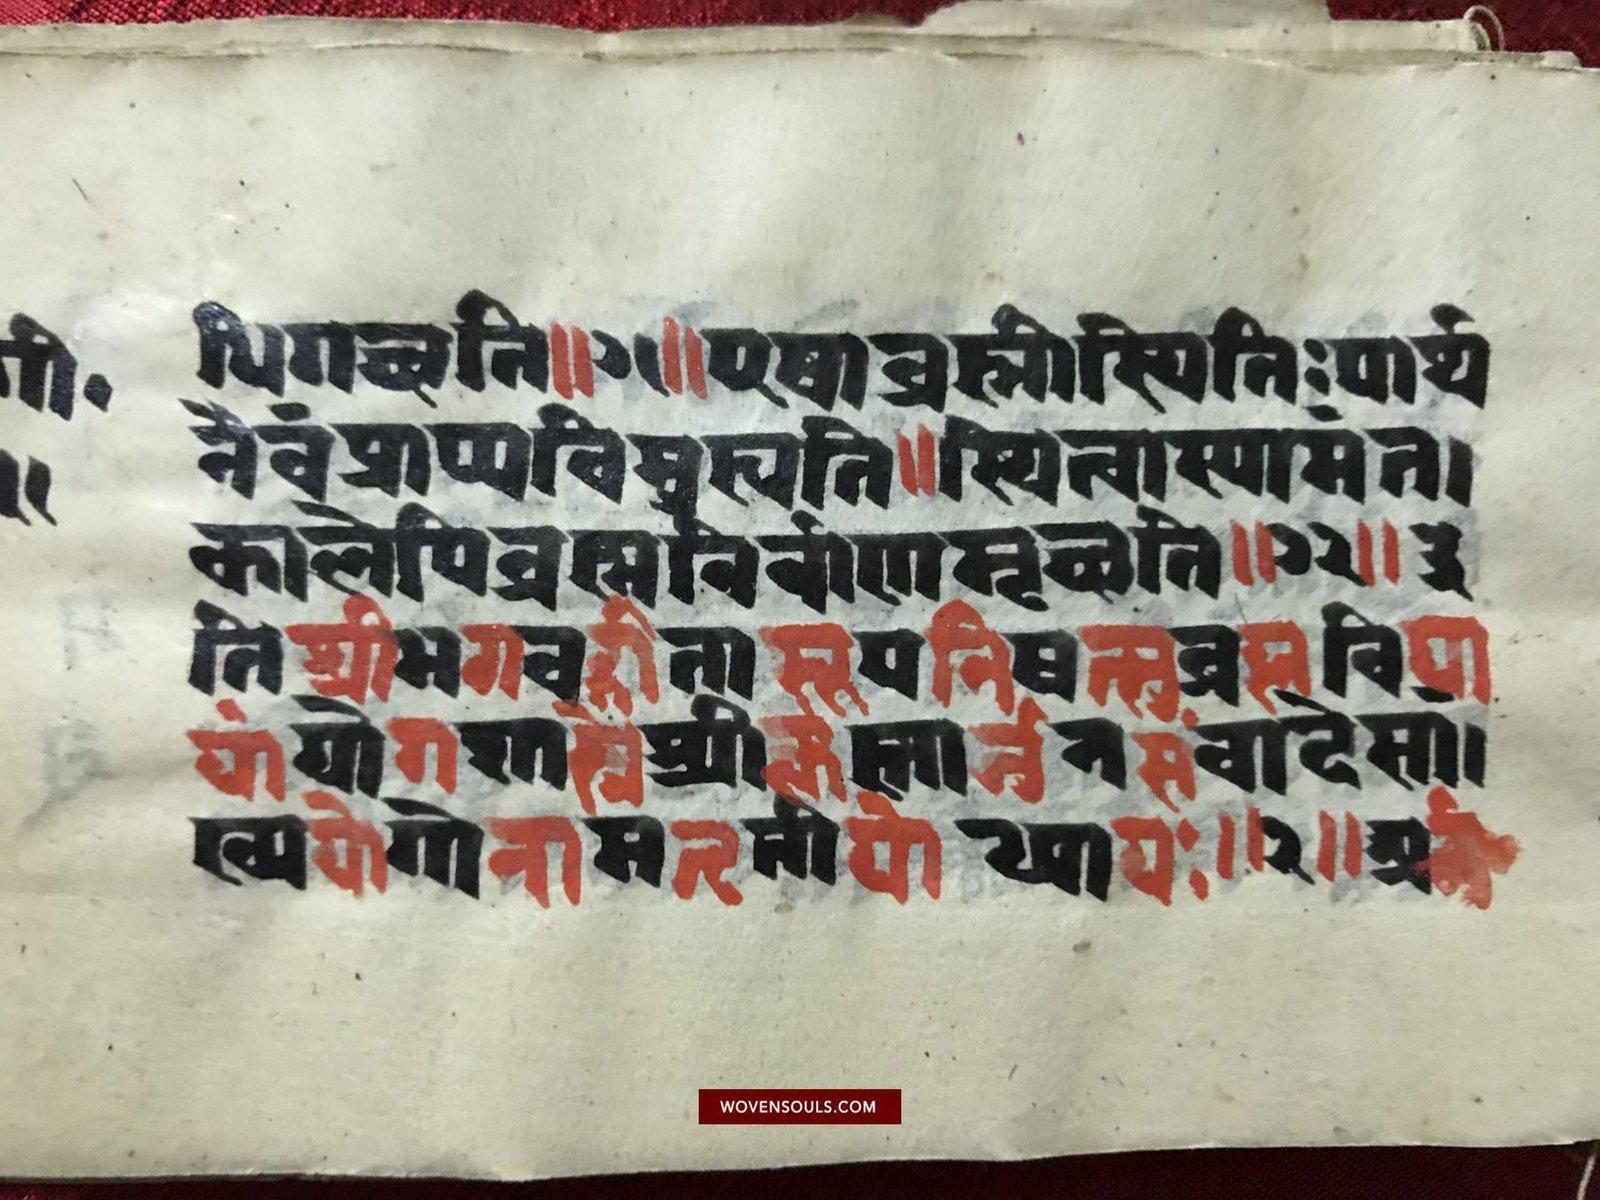 गी॰
धिगच्छति॥७१॥एषाब्राह्मीस्थितिःपार्थ
नैवंप्राप्यविमुह्यति॥स्थित्वास्यामंत।
कालेपिब्रह्मनिर्वाणमृच्छति॥७२॥इ
तिश्रीभगवद्गीतासूपनिषत्सुब्रह्मविद्या
यांयोगशास्त्रेश्रीकृष्णार्जुनसंवादेसां।
ख्ययोगोनामद्वितीयोध्यायः॥२॥अर्जु
WOVENSOULS.COM